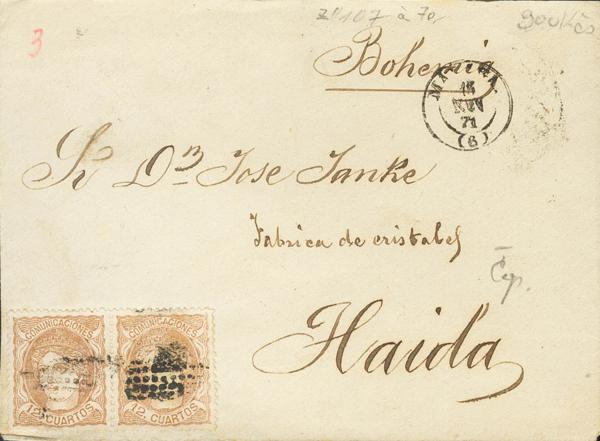 3
107 à 70,
Bohemia
MADRID
15
NOV
71
(6)
Sr Dn Jose Janke
Fabrica de cristales
Haida
COMUNICACIONES COMUNICACIONES
12 CUARTOS 12 CUARTOS